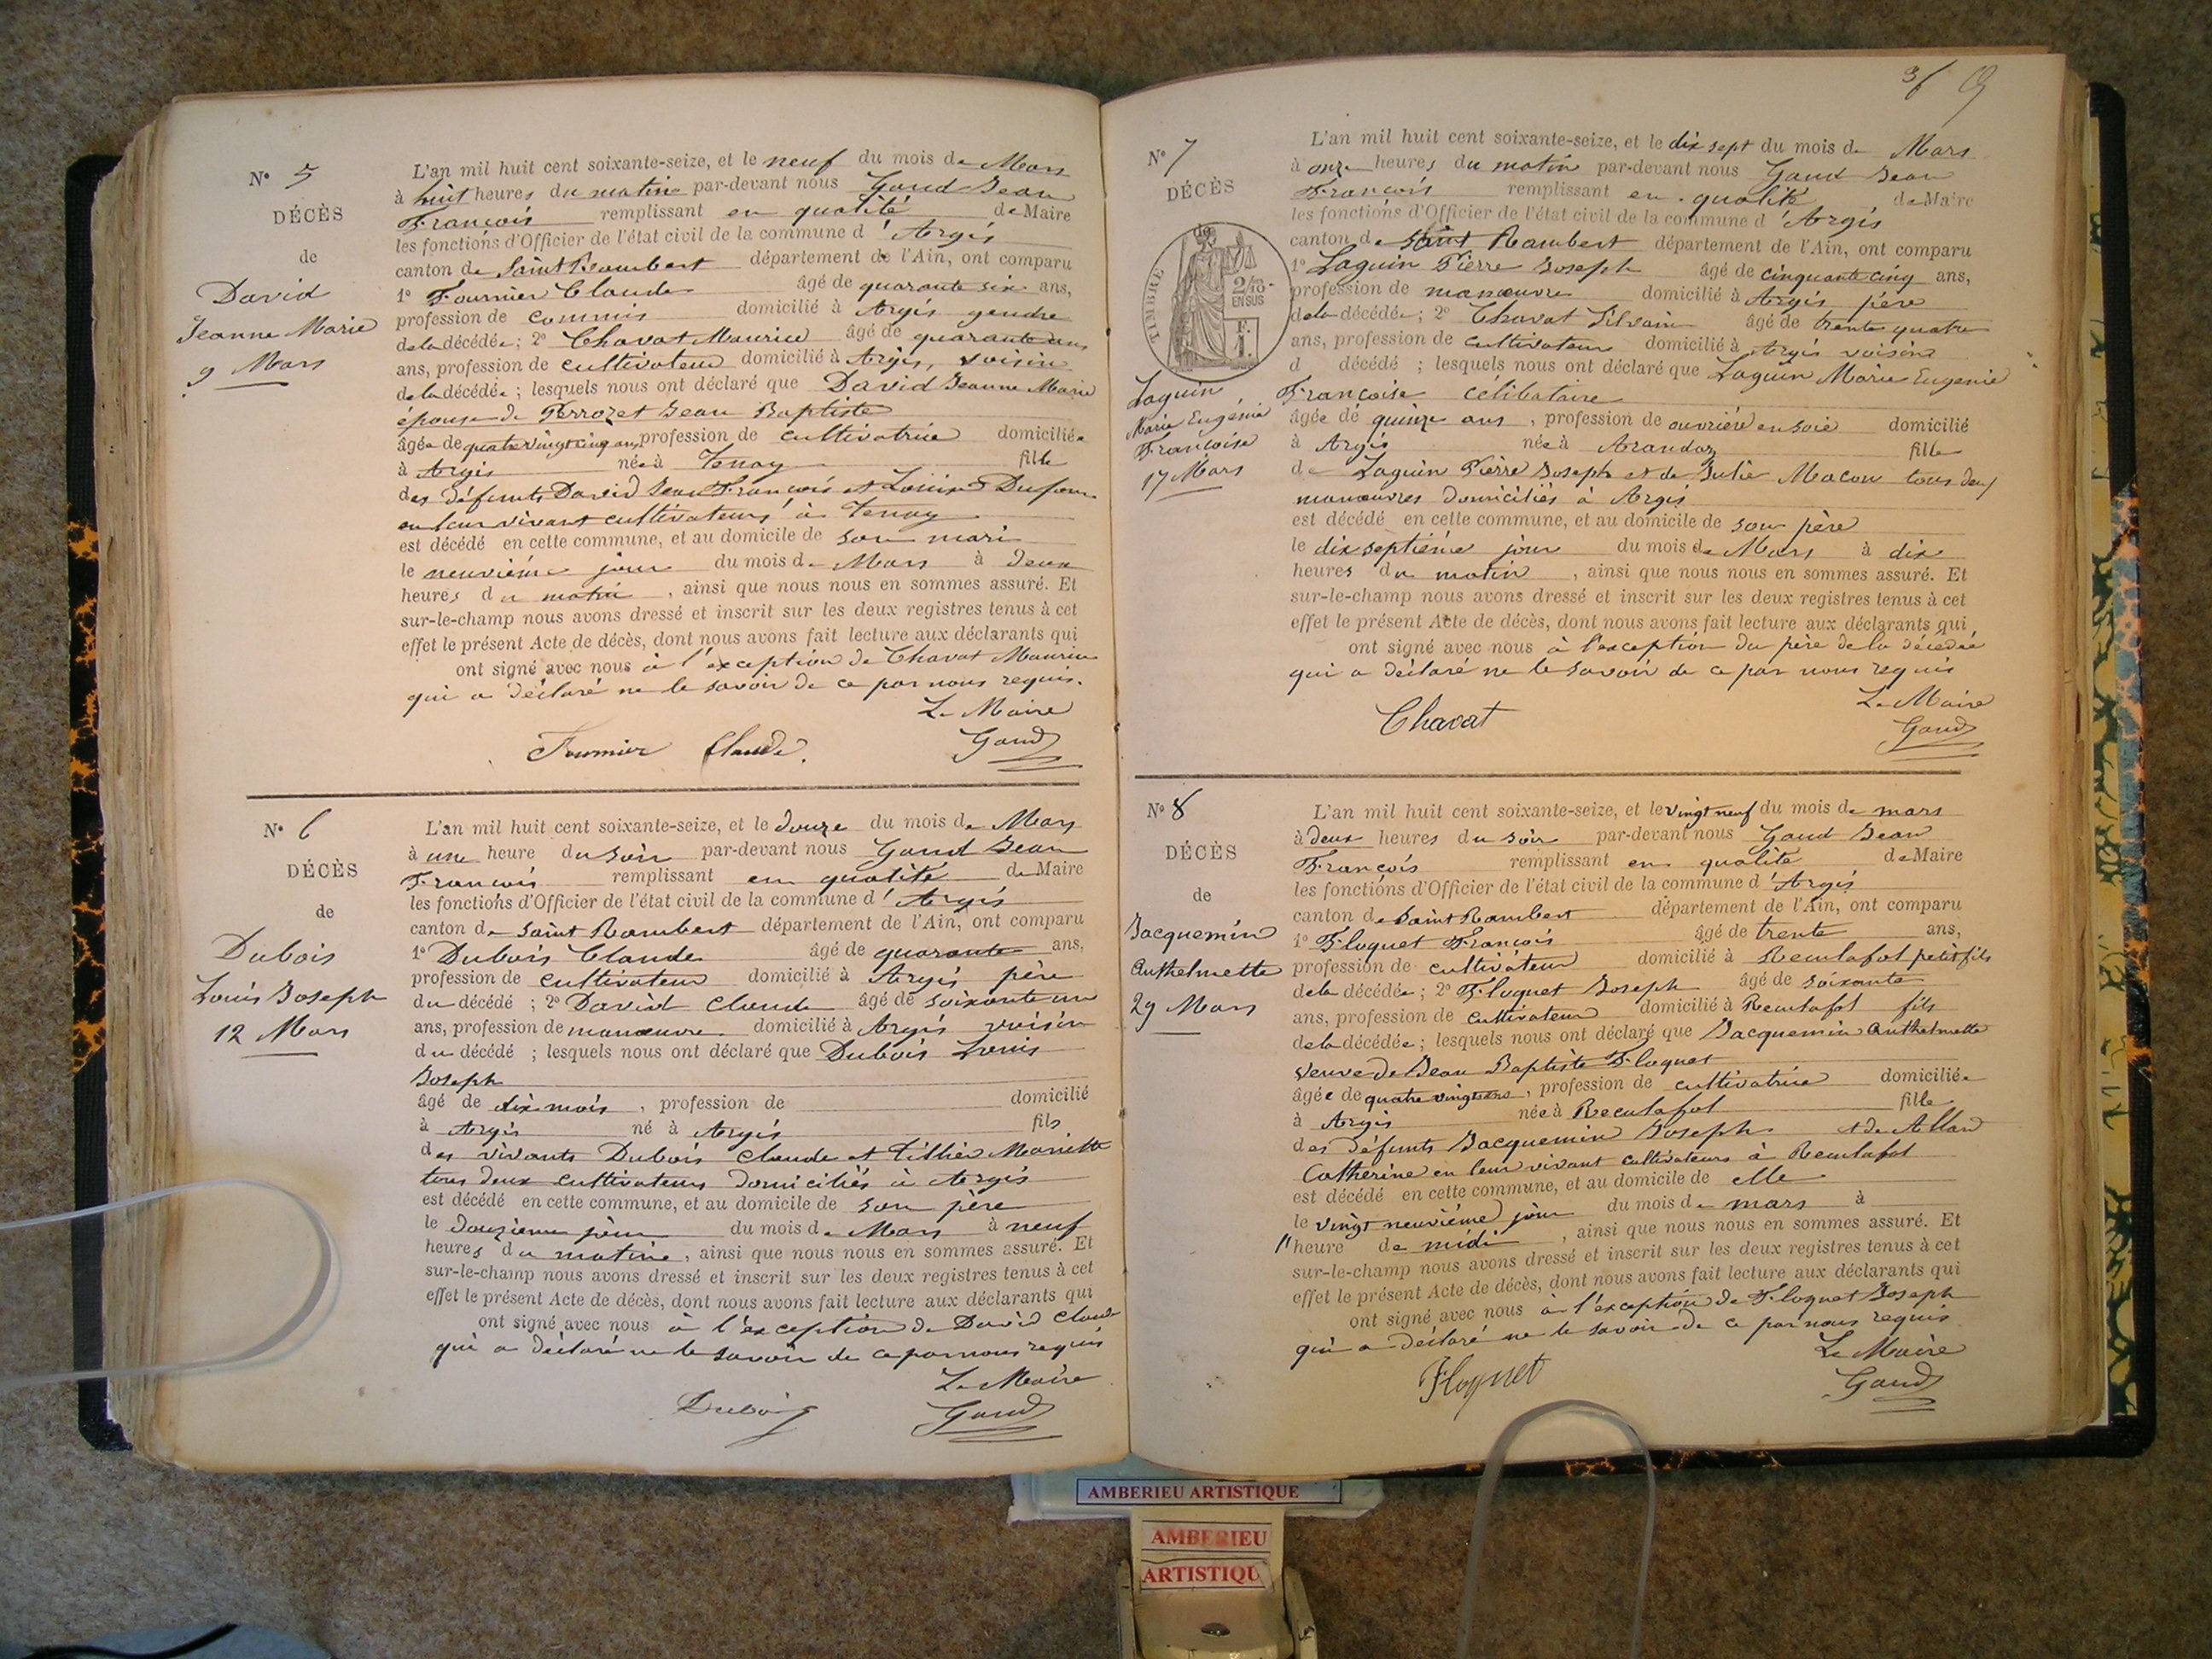 N° 5
DÉCÈS
de
David
Jeanne Marie
9 Mars
L'an mil huit cent soixante-seize, et le neuf du mois de Mars
à huit heures du matin par-devant nous Gaud Jean
François remplissant en qualité de Maire
les fonctions d'Officier de l'état civil de la commune d'Argis
canton de Saint Rambert département de l'Ain, ont comparu
1° Fournier Claude âgé de quarante six ans,
profession de commis domicilié à Argis gendre
de la décédée ; 2° Chavat Maurice âgé de quarante ans
ans, profession de cultivateur domicilié à Argis, voisin
de la décédée ; lesquels nous ont déclaré que David Jeanne Marie
épouse de Perrozet Jean Baptiste
âgée de quatre vingt cinq ans, profession de cultivatrice domiciliée
à Argis née à Tenay fille
des défunts David Jean François et Louise Dufour
en leur vivant cultivateurs à Tenay
est décédé en cette commune, et au domicile de son mari
le neuvième jour du mois de Mars à deux
heures du matin, ainsi que nous nous en sommes assuré. Et
sur-le-champ nous avons dressé et inscrit sur les deux registres tenus à cet
effet le présent Acte de décès, dont nous avons fait lecture aux déclarants qui
ont signé avec nous à l'exception de Chavat Maurice
qui a déclaré ne le savoir de ce par nous requis.
Le Maire
Fournier Claude. Gaud
N° 6
DÉCÈS
de
Dubois
Louis Joseph
12 Mars
L'an mil huit cent soixante-seize, et le douze du mois de Mars
à une heure du soir par-devant nous Gaud Jean
François remplissant en qualité de Maire
les fonctions d'Officier de l'état civil de la commune d'Argis
canton de Saint Rambert département de l'Ain, ont comparu
1° Dubois Claude âgé de quarante ans,
profession de cultivateur domicilié à Argis père
du décédé ; 2° David Claude âgé de soixante un
ans, profession de manœuvre domicilié à Argis voisin
du décédé ; lesquels nous ont déclaré que Dubois Louis
Joseph
âgé de dix mois, profession de domicilié
à Argis né à Argis fils
des vivants Dubois Claude et Tillier Mariette
tous deux cultivateurs domiciliés à Argis
est décédé en cette commune, et au domicile de son père
le douzième jour du mois de Mars à neuf
heures du matin, ainsi que nous nous en sommes assuré. Et
sur-le-champ nous avons dressé et inscrit sur les deux registres tenus à cet
effet le présent Acte de décès, dont nous avons fait lecture aux déclarants qui
ont signé avec nous à l'exception de David Claude
qui a déclaré ne le savoir de ce par nous requis
Le Maire
Dubois Gaud
N° 7
DÉCÈS
de
TIMBRE
2/10 EN SUS
F. 1.
Laguin
Marie Eugénie
Françoise
17 Mars
L'an mil huit cent soixante-seize, et le dix sept du mois de Mars
à onze heures du matin par-devant nous Gaud Jean
François remplissant en qualité de Maire
les fonctions d'Officier de l'état civil de la commune d'Argis
canton de Saint Rambert département de l'Ain, ont comparu
1° Laguin Pierre Joseph âgé de cinquante cinq ans,
profession de manœuvre domicilié à Argis père
de la décédée ; 2° Chavat Silvain âgé de trente quatre
ans, profession de cultivateur domicilié à Argis voisin
d décédé ; lesquels nous ont déclaré que Laguin Marie Eugenie
Françoise célibataire
âgée de quinze ans, profession de ouvrière en soie domicilié
à Argis née à Arandas fille
de Laguin Pierre Joseph et de Julie Macon tous deux
manœuvres domiciliés à Argis
est décédé en cette commune, et au domicile de son père
le dix septième jour du mois de Mars à dix
heures du matin, ainsi que nous nous en sommes assuré. Et
sur-le-champ nous avons dressé et inscrit sur les deux registres tenus à cet
effet le présent Acte de décès, dont nous avons fait lecture aux déclarants qui
ont signé avec nous à l'exception du père de la décédée
qui a déclaré ne le savoir de ce par nous requis
Le Maire
Chavat Gaud
N° 8
DÉCÈS
de
Jacquemin
Anthelmette
29 Mars
L'an mil huit cent soixante-seize, et le vingt neuf du mois de mars
à deux heures du soir par-devant nous Gaud Jean
François remplissant en qualité de Maire
les fonctions d'Officier de l'état civil de la commune d'Argis
canton de Saint Rambert département de l'Ain, ont comparu
1° Floquet François âgé de trente ans,
profession de cultivateur domicilié à Reculafol petit fils
de la décédée ; 2° Floquet Joseph âgé de soixante
ans, profession de cultivateur domicilié à Reculafol fils
de la décédée ; lesquels nous ont déclaré que Jacquemin Anthelmette
veuve de Jean Baptiste Floquet
âgée de quatre vingts ans, profession de cultivatrice domiciliée
à Argis née à Reculafol fille
des défunts Jacquemin Joseph et de Allard
Catherine en leur vivant cultivateurs à Reculafol
est décédé en cette commune, et au domicile de elle
le vingt neuvième jour du mois de mars à
" heure de midi, ainsi que nous nous en sommes assuré. Et
sur-le-champ nous avons dressé et inscrit sur les deux registres tenus à cet
effet le présent Acte de décès, dont nous avons fait lecture aux déclarants qui
ont signé avec nous à l'exception de Floquet Joseph
qui a déclaré ne le savoir de ce par nous requis
Le Maire
Floquet Gaud
AMBERIEU ARTISTIQUE
AMBERIEU
ARTISTIQU